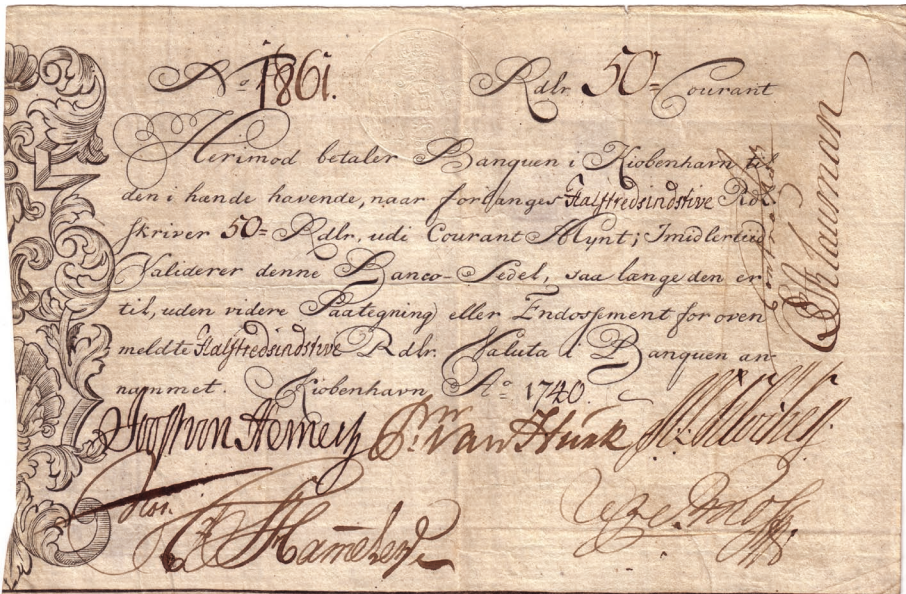 No. 1861. Rdlr. 50= Courant
Herimod betaler Banquen i Kiøbenhavn til
den i hænde havende, naar forlanges Halftredsindstive Rd
skriver 50= Rdlr. udi Courant Mynt; Imidlertiid
Validerer denne Banco-Sedel, saa længe den er
til, uden videre Paategning eller Endossement for oven
meldte Halftredsindstive Rdlr. Valuta i Banquen an-
nammet. Kiøbenhavn Ao= 1740.
Joost von Hemert
van Hurk